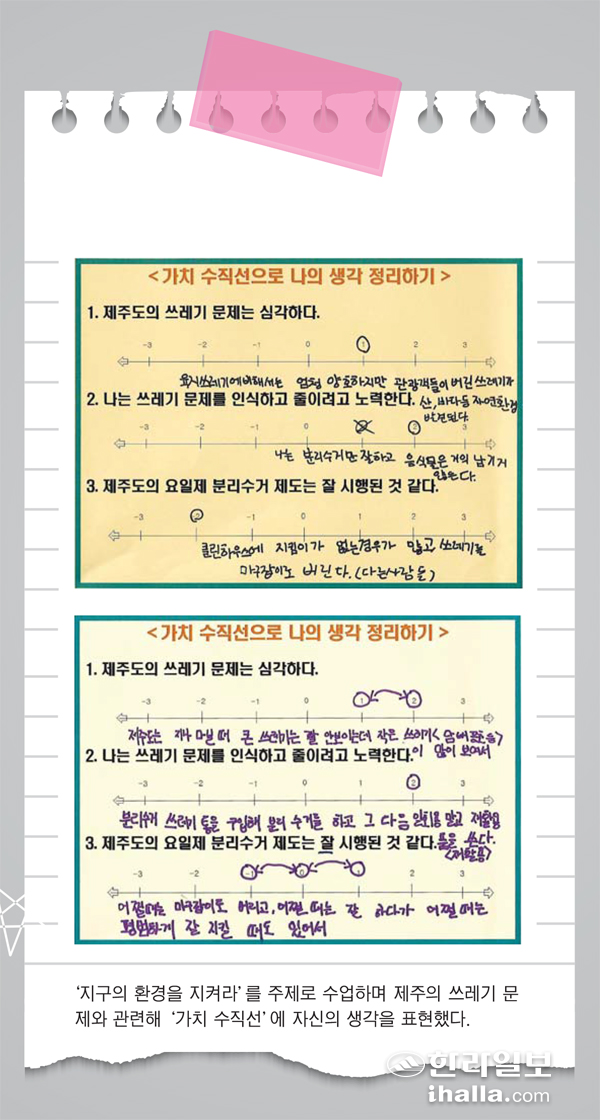 <가치 수직선으로 나의 생각 정리하기>
1. 제주도의 쓰레기 문제는 심각하다.
-3 -2 -1 0 1 2 3
육지쓰레기에 비해서는 엄청 양호하지만 관광객들이 버린 쓰레기가
산, 바다등 자연환경
발견된다.
2. 나는 쓰레기 문제를 인식하고 줄이려고 노력한다.
-3 -2 -1 0 1 2 3
나는 분리수거만 잘하고 음식물은 거의 남기지
않는다.
3. 제주도의 요일제 분리수거 제도는 잘 시행된 것 같다.
-3 -2 -1 0 1 2 3
클린하우스에 지킴이가 없는경우가 많고 쓰레기를
마구잡이로 버린다. (다른사람들)
<가치 수직선으로 나의 생각 정리하기>
1. 제주도의 쓰레기 문제는 심각하다.
-3 -2 -1 0 1 2 3
제주도는 지나 다닐 때 큰 쓰레기는 잘 안보이는데 작은 쓰레기(담배꽁초등)
이 많이 보여서
2. 나는 쓰레기 문제를 인식하고 줄이려고 노력한다.
-3 -2 -1 0 1 2 3
분리수거 쓰레기 통을 구입해 분리 수거를 하고 그 다음 일회용 말고 재활용
품을 쓴다.
(재활용)
3. 제주도의 요일제 분리수거 제도는 잘 시행된 것 같다.
-3 -2 -1 0 1 2 3
어쩔때는 마구잡이로 버리고, 어쩔 때는 잘 하다가 어쩔 때는
평범하게 잘 지킬 때도 있어서
‘지구의 환경을 지켜라’를 주제로 수업하며 제주의 쓰레기 문
제와 관련해 ‘가치 수직선’에 자신의 생각을 표현했다.
한라일보
ihalla.com